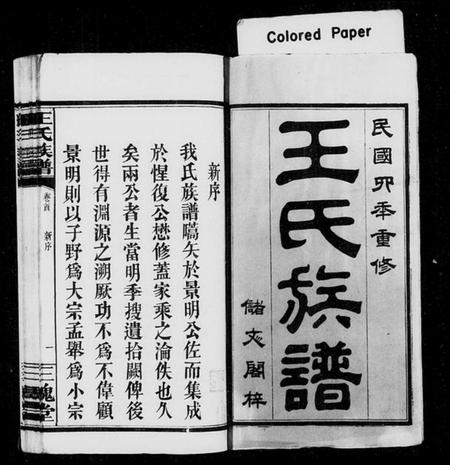 Colored Paper
民國卯年重修
王氏族譜
儲文閣梓
新序
我氏族譜嚆矢於景明公佐而集成
於惺復公懋修蓋家乘之淪佚也久
矣兩公者生當明季搜遺拾闕俾後
世得有淵源之溯厥功不爲不偉顧
景明則以子野爲大宗孟舉爲小宗
王氏族譜
卷首
新序
一
三槐堂